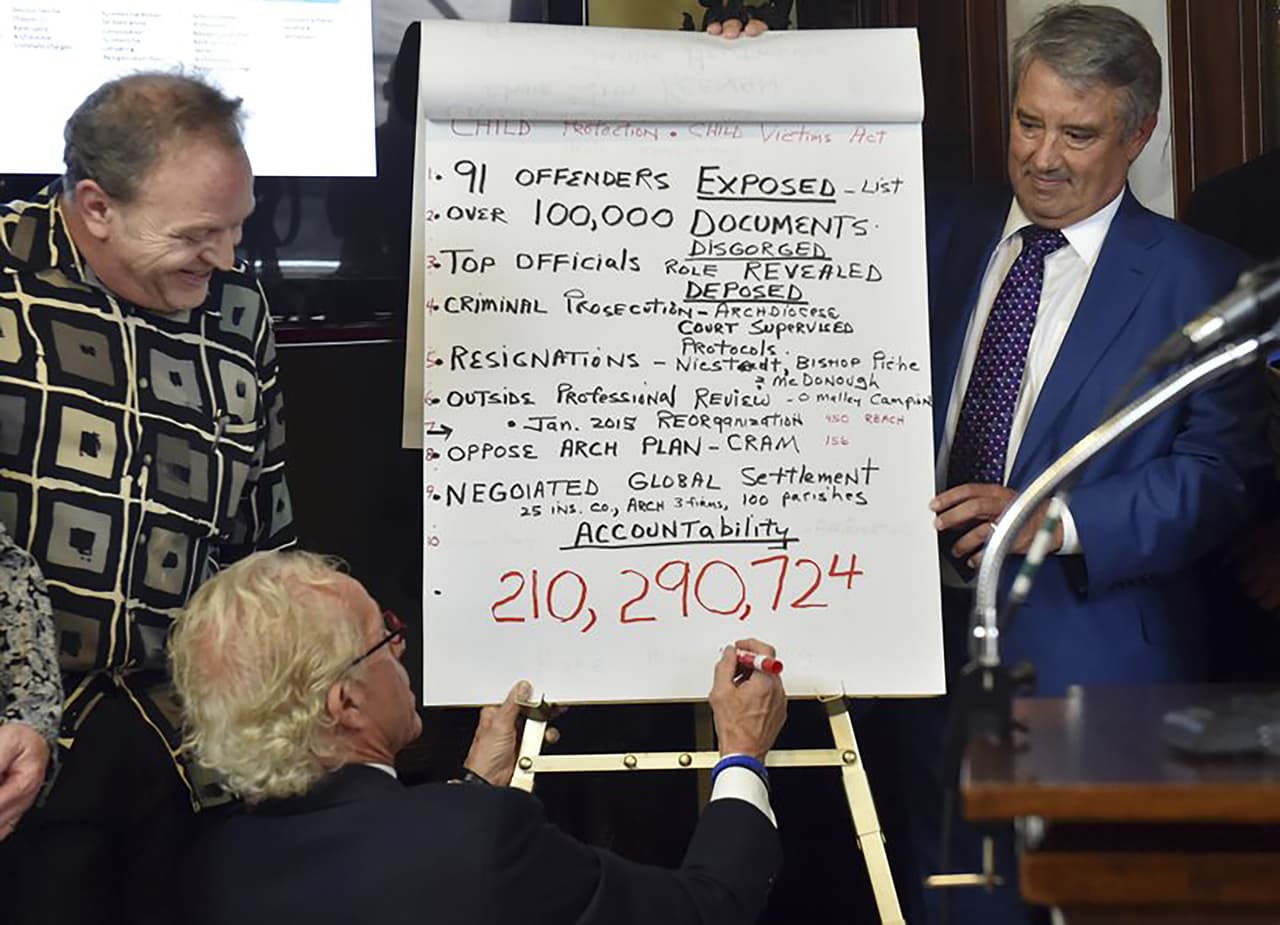 CHILD Protection • CHILD Victims Act
1. 91 OFFENDERS EXPOSED - LIST
2. OVER 100,000 DOCUMENTS.
DISGORGED
3. TOP OFFICIALS ROLE REVEALED
DEPOSED
4. CRIMINAL PROSECUTION - ARCHDIOCESE
COURT SUPERVISED
PROTOCOLS.
5. RESIGNATIONS - Niestedt, BISHOP Piche
& McDONOUGH
6. OUTSIDE Professional REVIEW - O Malley Campion
7. → • Jan. 2015 REORganization 450 REACH
8. OPPOSE ARCH PLAN - CRAM 156
9. NEGOIATED GLOBAL Settlement
25 INS. CO., ARCH 3 firms, 100 parishes
10 ACCOUNTability
• 210,290,724